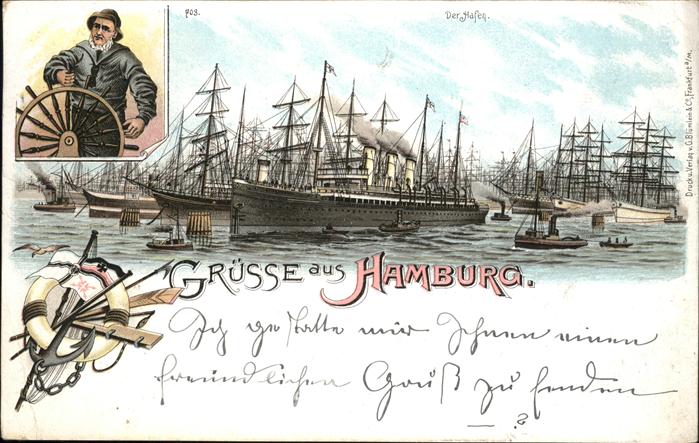 903.
Der Hafen.
Druck u. Verlag v. G. Blümlein & Co., Frankfurt a/M.
GRÜSSE aus HAMBURG.
Ich gestatte mir Ihnen einen
freundlichen Gruß zu senden
— ?